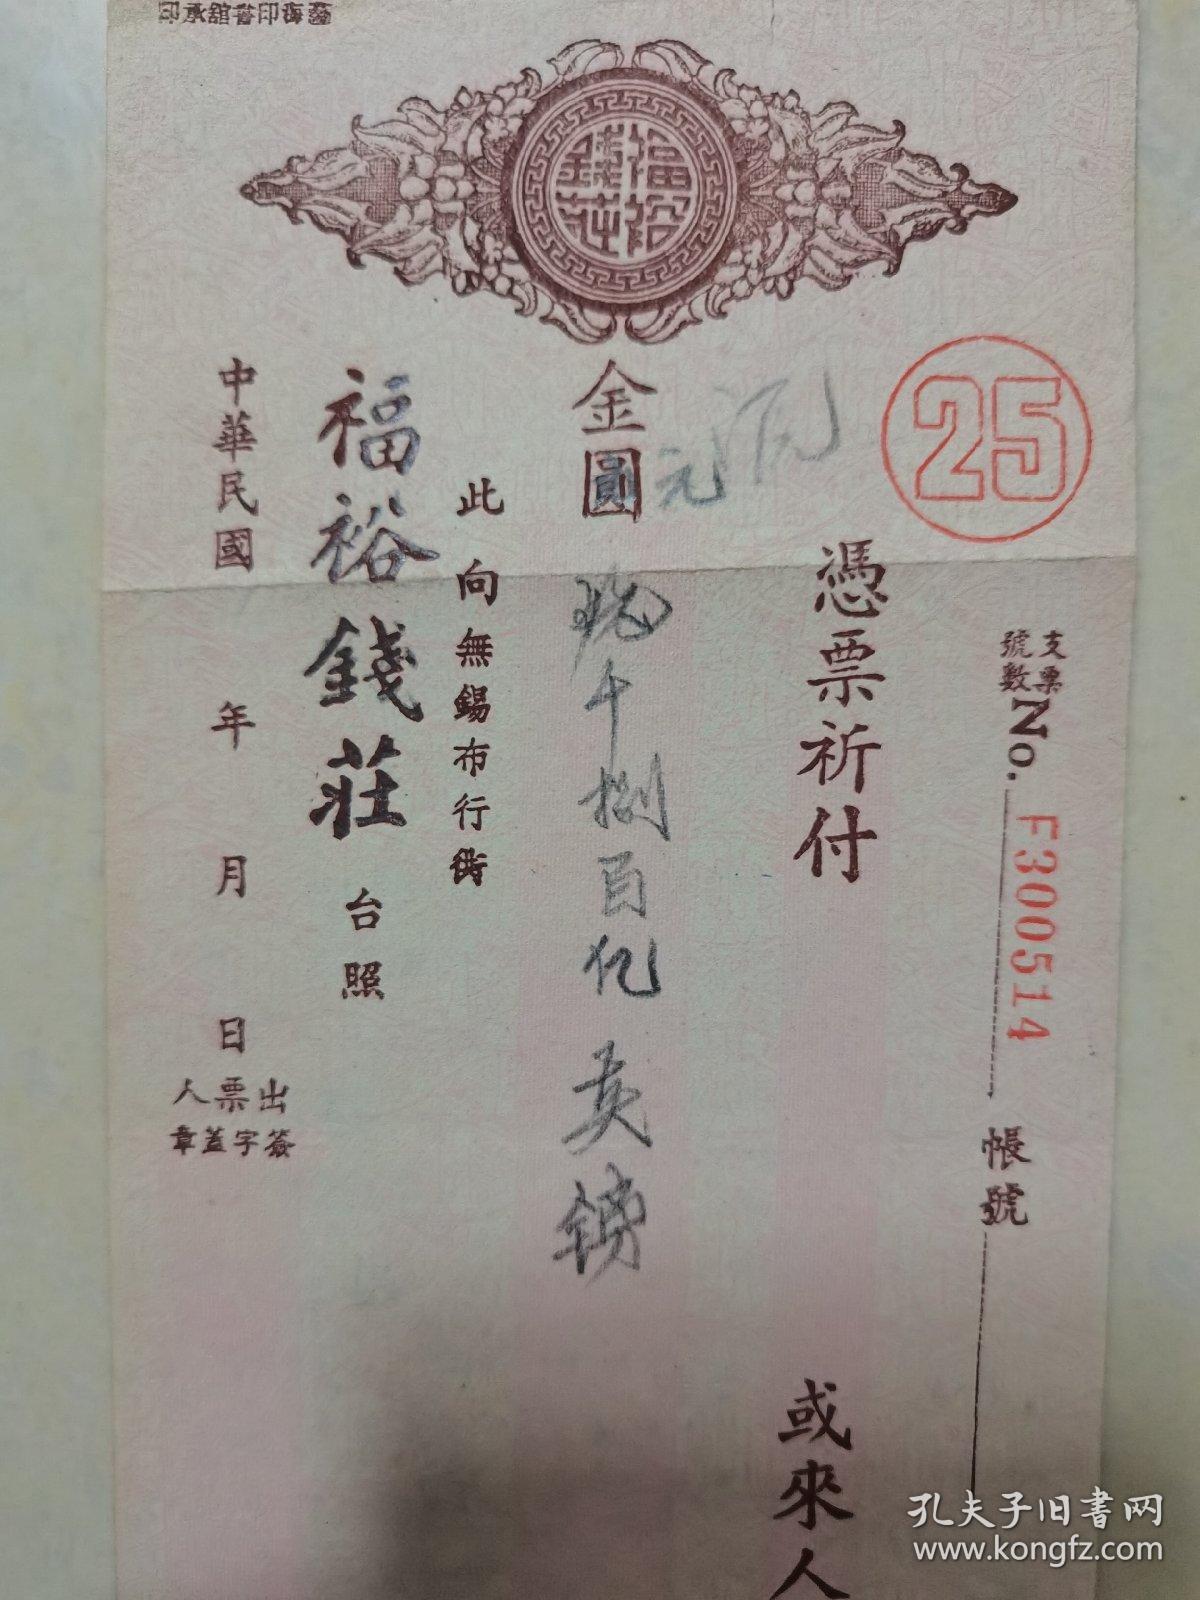 藝海印書舘承印
福裕錢莊
25
支票號數 No. F300514 帳號
憑票祈付 或來人
金圓 玖千捌百亿 英鎊
元
此向無錫布行街
福裕錢莊 台照
中華民國 年 月 日
出票人
簽字蓋章
孔夫子旧书网
www.kongfz.com